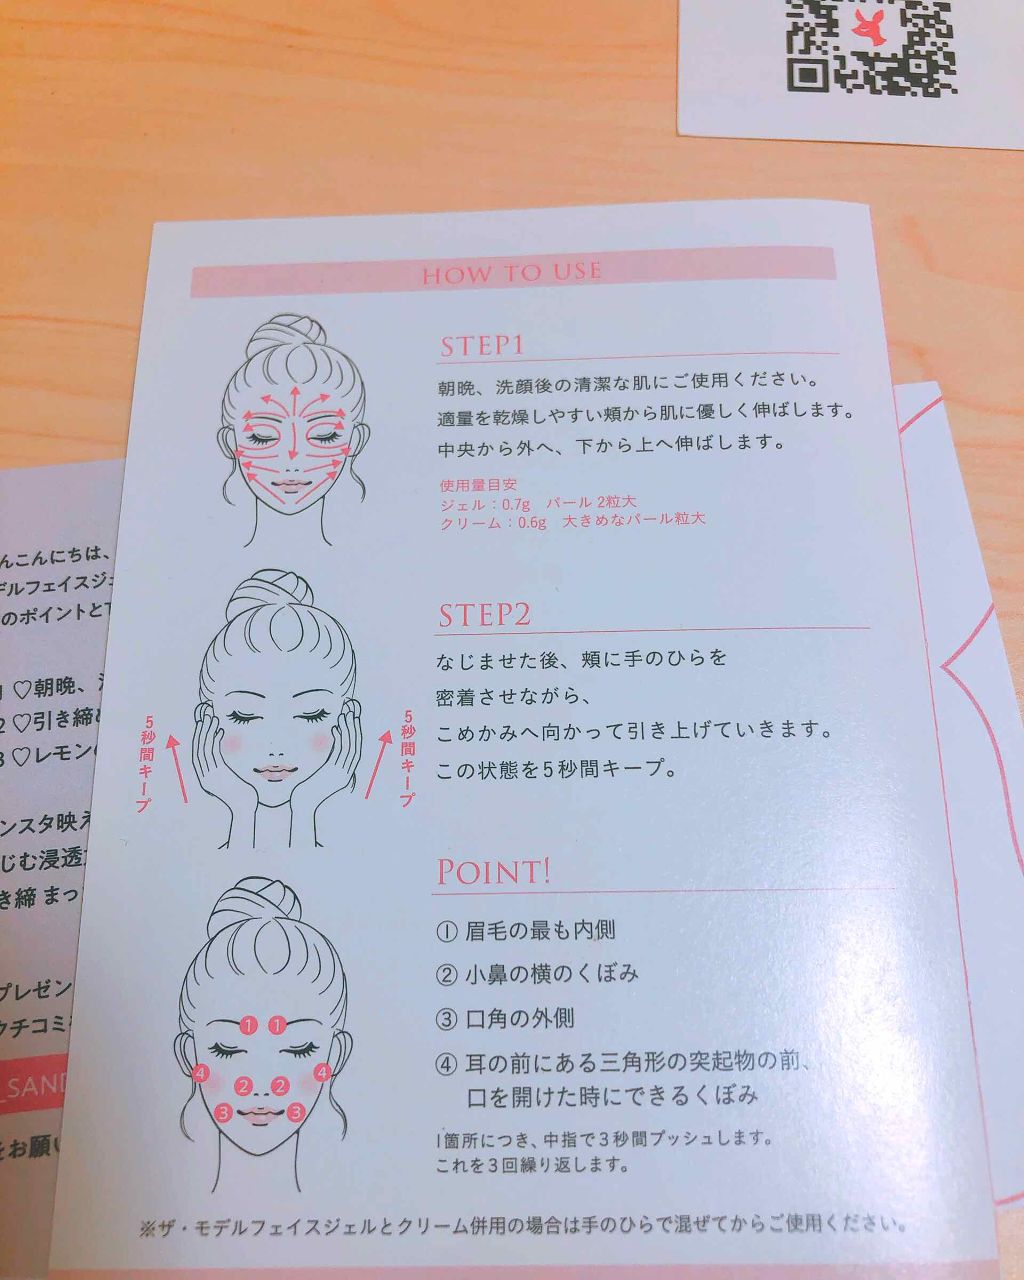 HOW TO USE
STEP1
朝晩、洗顔後の清潔な肌にご使用ください。
適量を乾燥しやすい頬から肌に優しく伸ばします。
中央から外へ、下から上へ伸ばします。
使用量目安
ジェル：0.7g パール 2粒大
クリーム：0.6g 大きめなパール粒大
STEP2
なじませた後、頬に手のひらを
密着させながら、
こめかみへ向かって引き上げていきます。
この状態を5秒間キープ。
5秒間キープ
5秒間キープ
POINT!
① 眉毛の最も内側
② 小鼻の横のくぼみ
③ 口角の外側
④ 耳の前にある三角形の突起物の前、
口を開けた時にできるくぼみ
1箇所につき、中指で3秒間プッシュします。
これを3回繰り返します。
1 1
4 4
2 2
3 3
※ザ・モデルフェイスジェルとクリーム併用の場合は手のひらで混ぜてからご使用ください。
んこんにちは、
デルフェイスジェ
のポイントと
♡朝晩、
2 ♡引き締
3 ♡レモン
ンスタ映え
じむ浸透
き締 まっ
プレゼン
クチコミ
_SAND
をお願い